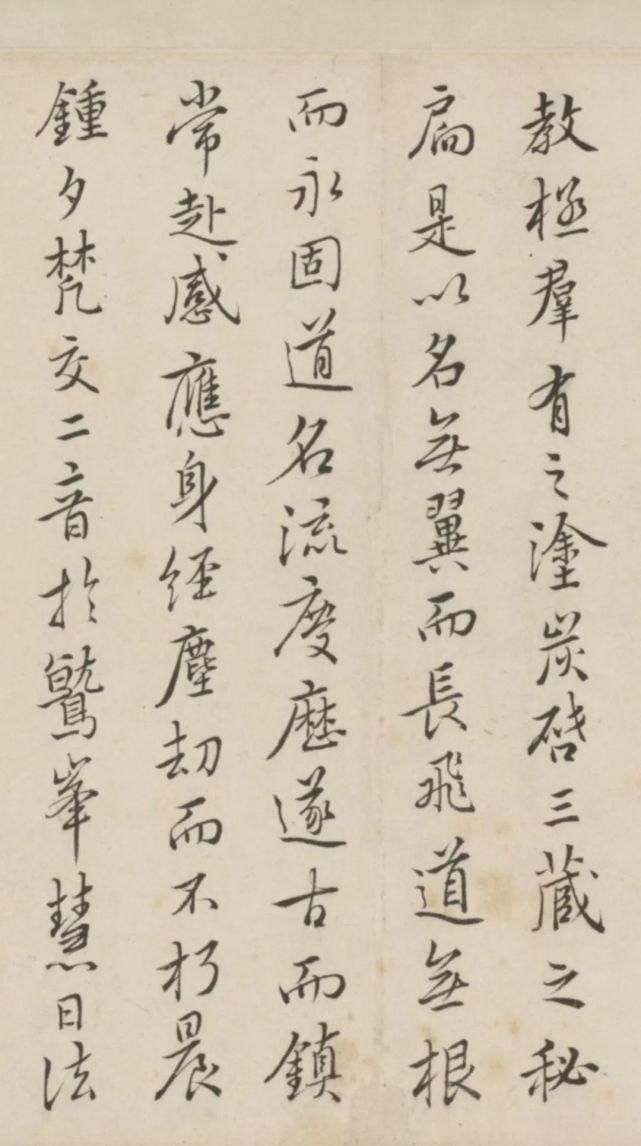 教拯羣有之塗炭啓三藏之秘
扃是以名無翼而長飛道無根
而永固道名流慶歷遂古而鎮
常赴感應身經塵劫而不朽晨
鍾夕梵交二音於鷲峯慧日法